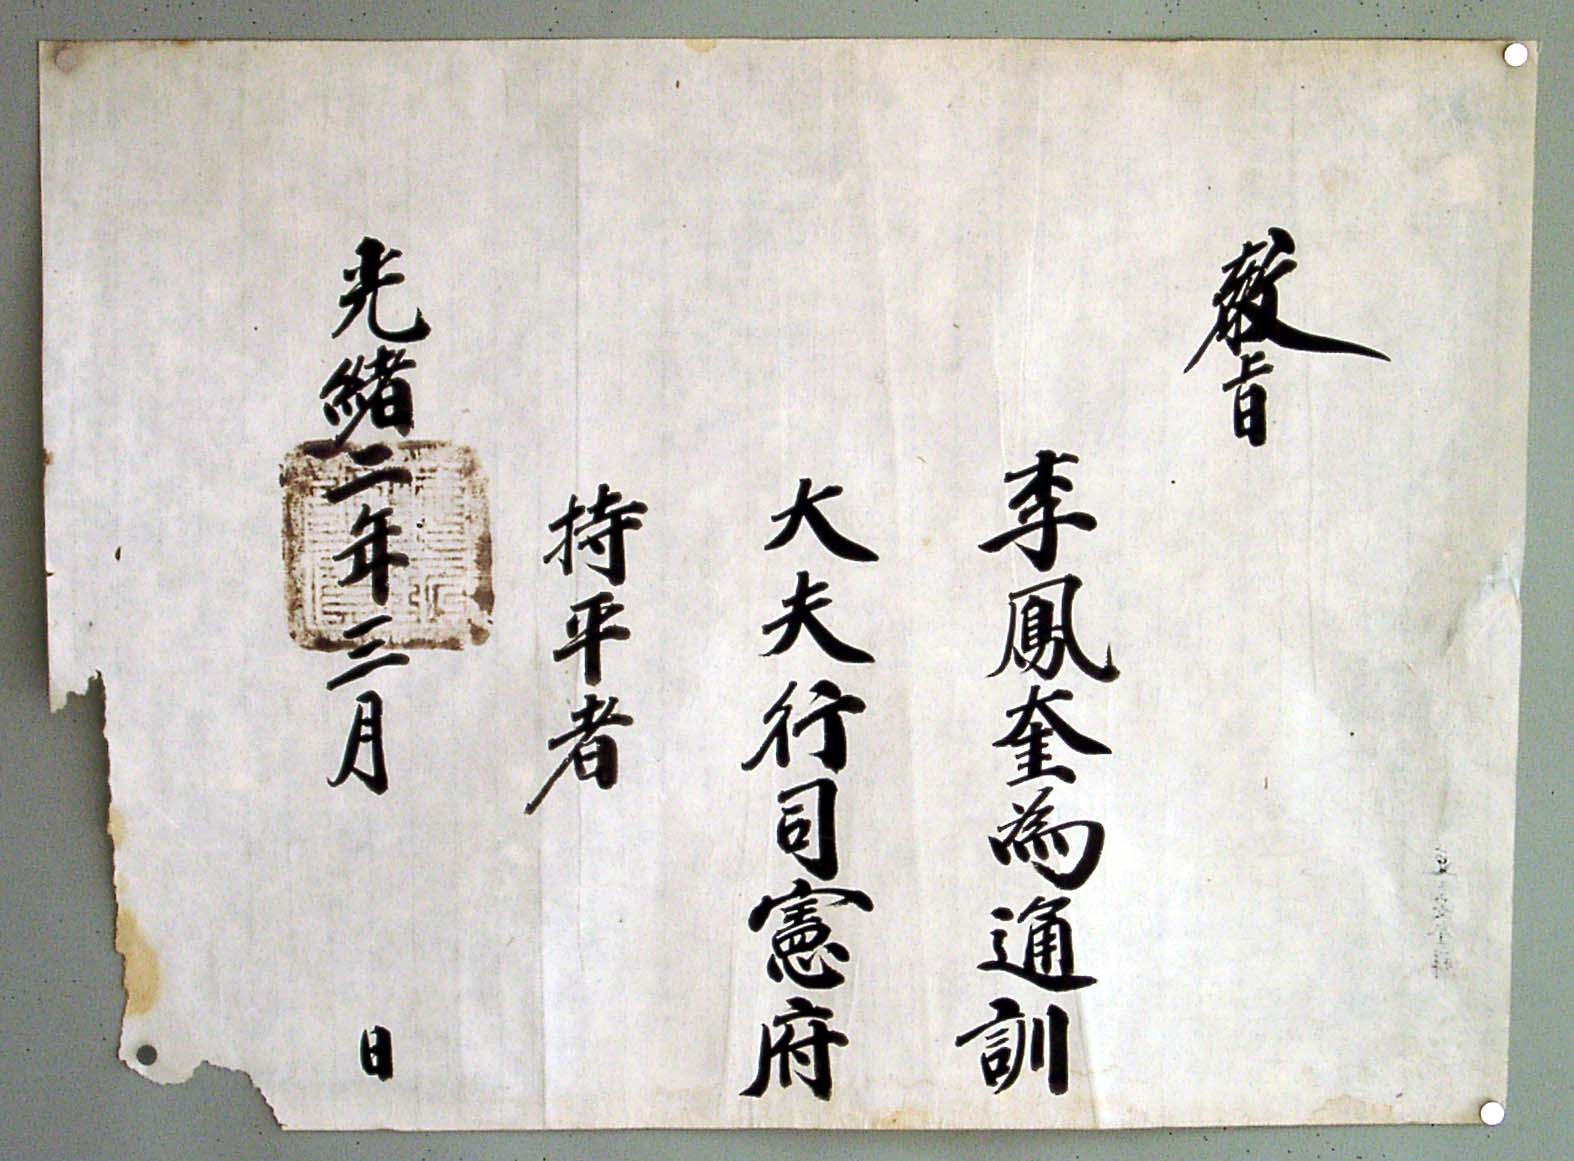 敎旨
李鳳奎為通訓
大夫行司憲府
持平者
光緖二年三月 日